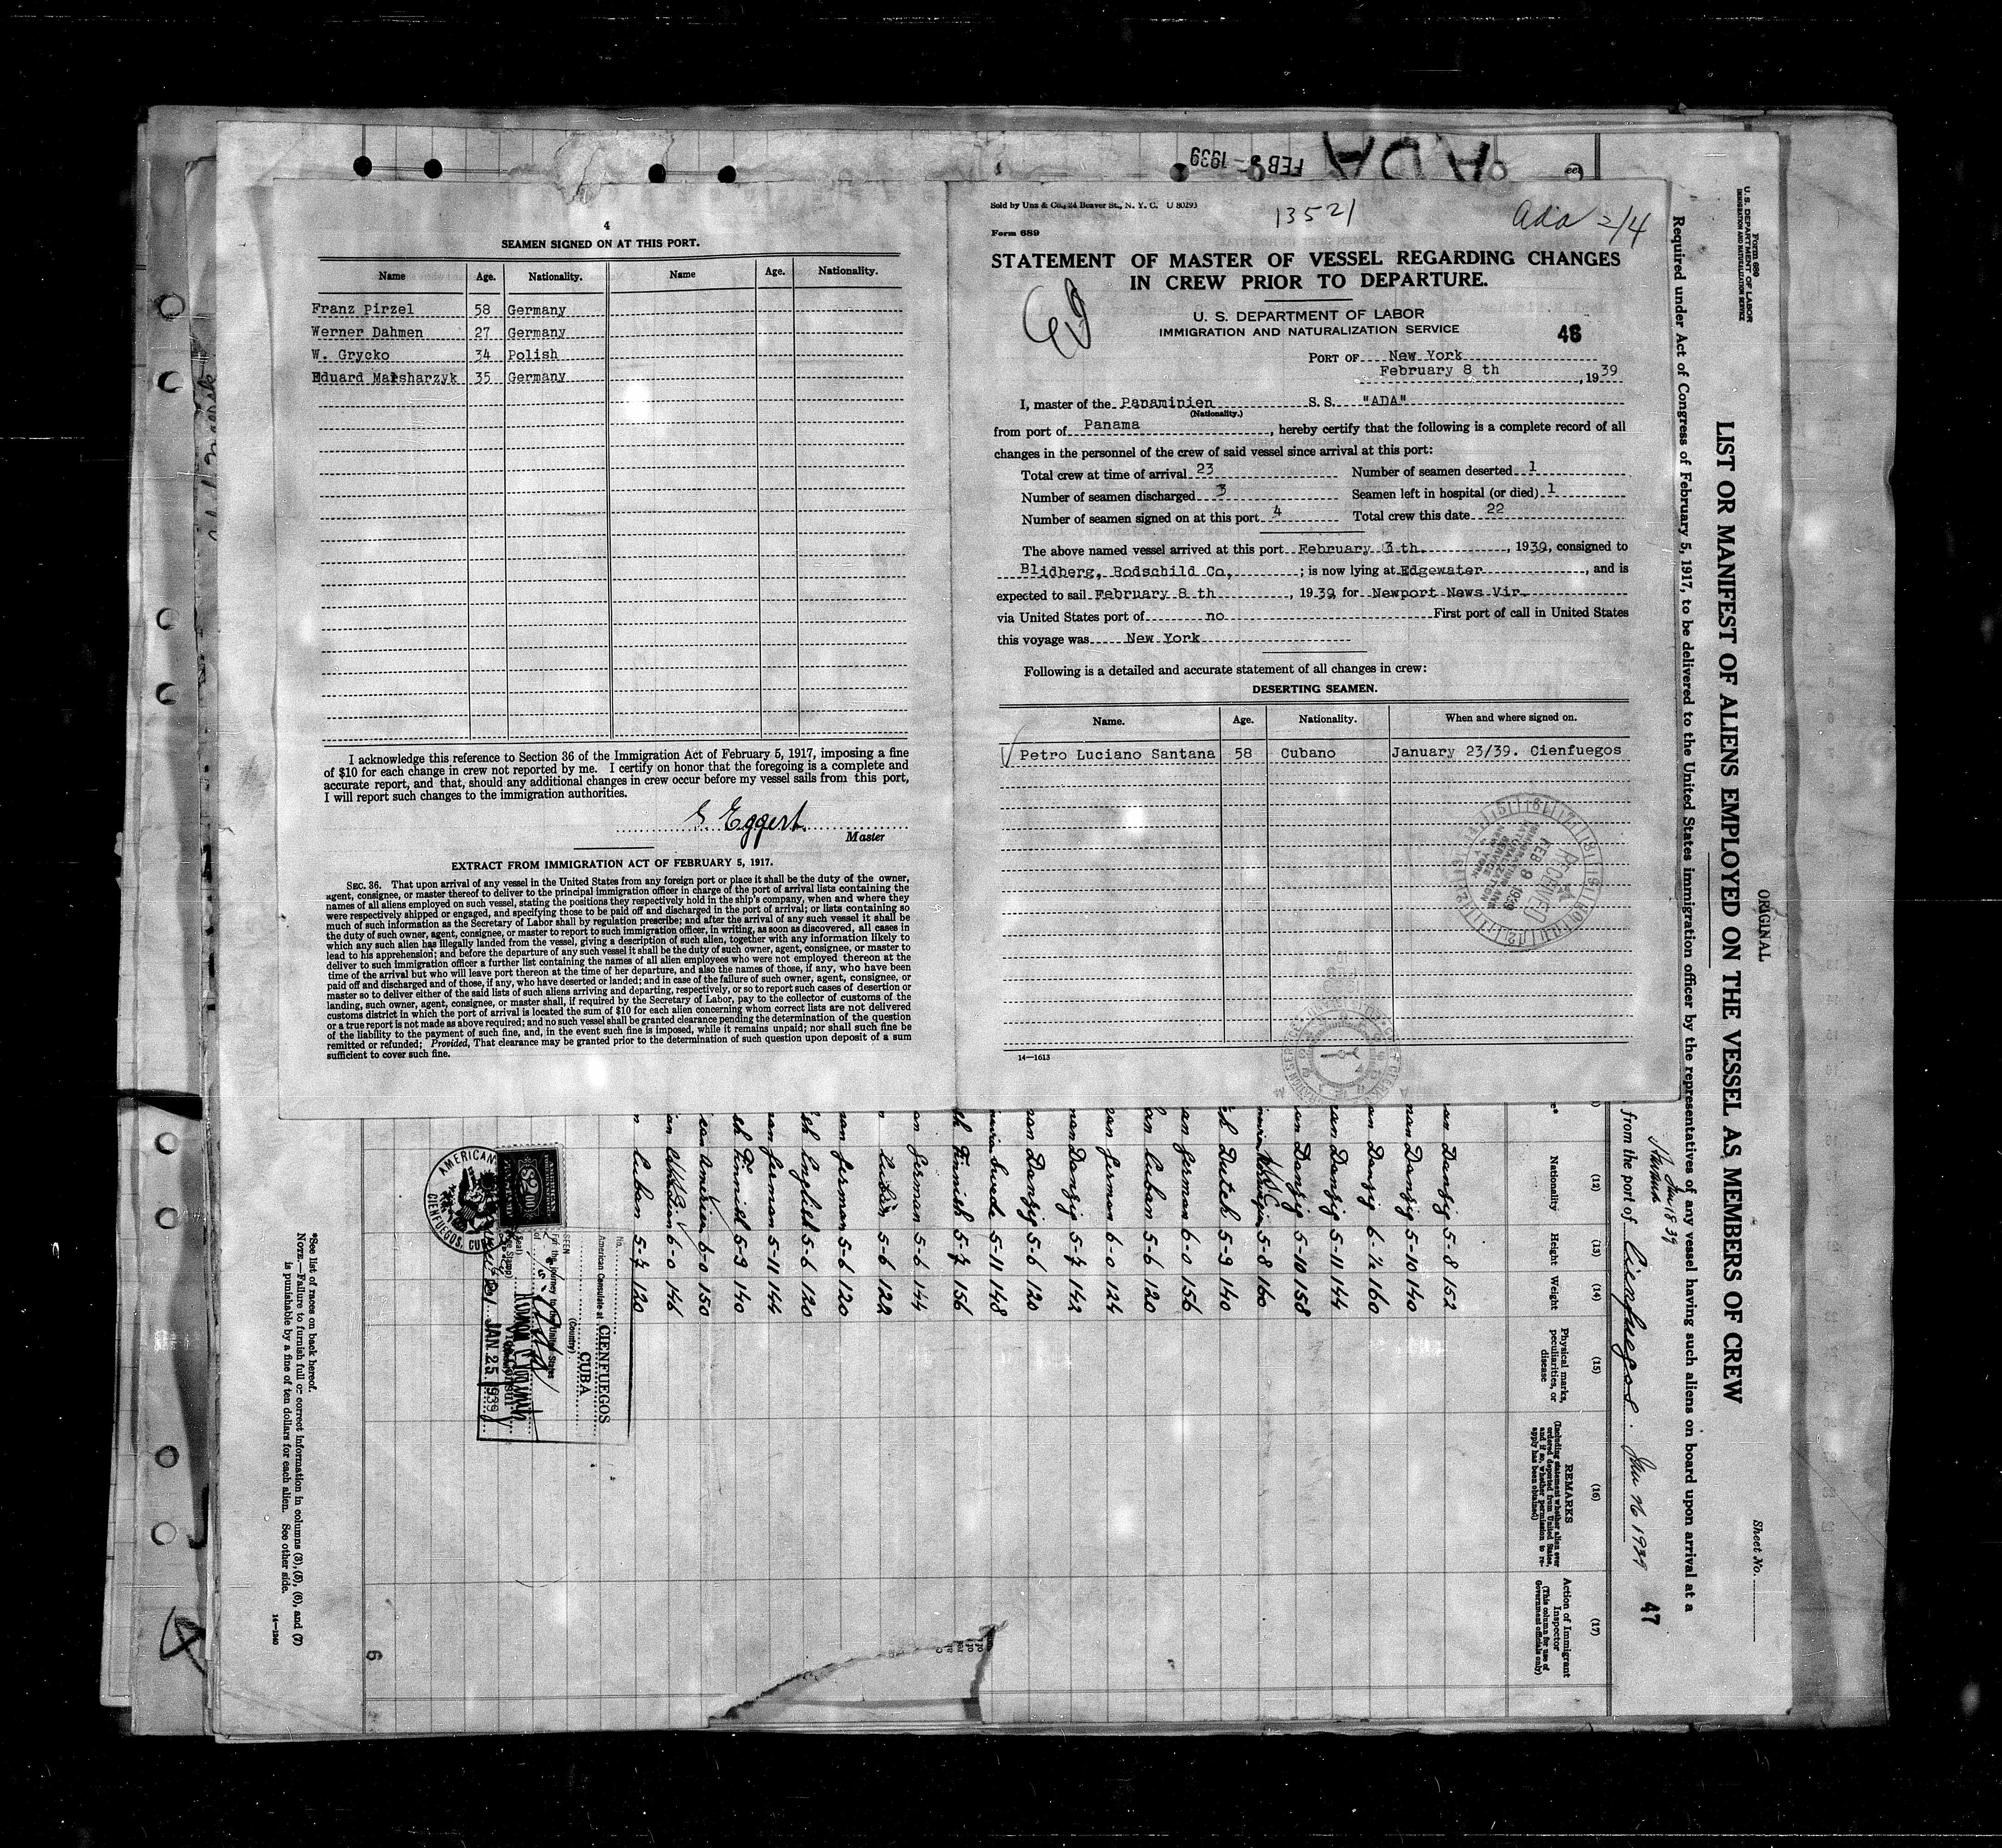 ADA
FEB 8 - 1939
4
SEAMEN SIGNED ON AT THIS PORT.
Name Age. Nationality. Name Age. Nationality.
Franz Pirzel 58 Germany
Werner Dahmen 27 Germany
W. Grycko 34 Polish
Eduard Marsharzyk 35 Germany
I acknowledge this reference to Section 36 of the Immigration Act of February 5, 1917, imposing a fine
of $10 for each change in crew not reported by me. I certify on honor that the foregoing is a complete and
accurate report, and that, should any additional changes in crew occur before my vessel sails from this port,
I will report such changes to the immigration authorities.
Eggert
Master
EXTRACT FROM IMMIGRATION ACT OF FEBRUARY 5, 1917.
SEC. 36. That upon arrival of any vessel in the United States from any foreign port or place it shall be the duty of the owner,
agent, consignee, or master thereof to deliver to the principal immigration officer in charge of the port of arrival lists containing the
names of all aliens employed on such vessel, stating the positions they respectively hold in the ship's company, when and where they
were respectively shipped or engaged, and specifying those to be paid off and discharged in the port of arrival; or lists containing so
much of such information as the Secretary of Labor shall by regulation prescribe; and after the arrival of any such vessel it shall be
the duty of such owner, agent, consignee, or master to report to such immigration officer, in writing, as soon as discovered, all cases in
which any such alien has illegally landed from the vessel, giving a description of such alien, together with any information likely to
lead to his apprehension; and before the departure of any such vessel it shall be the duty of such owner, agent, consignee, or master to
deliver to such immigration officer a further list containing the names of all alien employees who were not employed thereon at the
time of the arrival but who will leave port thereon at the time of her departure, and also the names of those, if any, who have been
paid off and discharged and of those, if any, who have deserted or landed; and in case of the failure of such owner, agent, consignee, or
master so to deliver either of the said lists of such aliens arriving and departing, respectively, or so to report such cases of desertion or
landing, such owner, agent, consignee, or master shall, if required by the Secretary of Labor, pay to the collector of customs of the
customs district in which the port of arrival is located the sum of $10 for each alien concerning whom correct lists are not delivered
or a true report is not made as above required; and no such vessel shall be granted clearance pending the determination of the question
of the liability to the payment of such fine, and, in the event such fine is imposed, while it remains unpaid; nor shall such fine be
remitted or refunded; Provided, That clearance may be granted prior to the determination of such question upon deposit of a sum
sufficient to cover such fine.
Sold by Unz & Co., 24 Beaver St., N. Y. C. U 80293
13521
Ada 2/4
Form 689
STATEMENT OF MASTER OF VESSEL REGARDING CHANGES
IN CREW PRIOR TO DEPARTURE.
U. S. DEPARTMENT OF LABOR
IMMIGRATION AND NATURALIZATION SERVICE
48
PORT OF New York
February 8 th , 1939
I, master of the Panaminien S. S. "ADA"
(Nationality.)
from port of Panama , hereby certify that the following is a complete record of all
changes in the personnel of the crew of said vessel since arrival at this port:
Total crew at time of arrival 23 Number of seamen deserted 1
Number of seamen discharged 3 Seamen left in hospital (or died) 1
Number of seamen signed on at this port 4 Total crew this date 22
The above named vessel arrived at this port February 3 th , 1939, consigned to
Blidberg, Rodschild Co, ; is now lying at Edgewater , and is
expected to sail February 8 th , 1939 for Newport News Vir.
via United States port of no First port of call in United States
this voyage was New York
Following is a detailed and accurate statement of all changes in crew:
DESERTING SEAMEN.
Name. Age. Nationality. When and where signed on.
Petro Luciano Santana 58 Cubano January 23/39. Cienfuegos
RECEIVED
FEB 9 1939
14—1613
ORIGINAL
Sheet No.
Form 689
U. S. DEPARTMENT OF LABOR
IMMIGRATION AND NATURALIZATION SERVICE
LIST OR MANIFEST OF ALIENS EMPLOYED ON THE VESSEL AS MEMBERS OF CREW
Required under Act of Congress of February 5, 1917, to be delivered to the United States immigration officer by the representatives of any vessel having such aliens on board upon arrival at a
Jan 18 39
from the port of Cienfuegos. Jan 26 1939
47
(12) (13) (14) (15) (16) (17)
Nationality Height Weight Physical marks, peculiarities, or disease
REMARKS
(Including statement whether alien ever ordered deported from United States, and if so, whether permission to reapply has been obtained)
Action of Immigrant Inspector
(This column for use of Government officials only)
Danzig 5-8 152
Danzig 5-10 140
Danzig 6-½ 160
Danzig 5-11 144
Danzig 5-10 158
5-8 160
Dutch 5-9 140
German 6-0 156
Cuban 5-6 120
German 6-0 124
Danzig 5-7 142
Danzig 5-6 120
Swede 5-11 148
Finnish 5-7 156
German 5-6 144
Cuban 5-6 122
German 5-6 120
English 5-6 120
German 5-11 144
Finnish 5-9 140
American 6-0 150
6-0 146
Cuban 5-7 120
No.
American Consulate at CIENFUEGOS
CUBA
(Country)
SEEN
For the journey to the United States
Vice Consul
JAN 25 1939
AMERICAN
CIENFUEGOS, CUBA
$2.00
*See list of races on back hereof.
NOTE.—Failure to furnish full or correct information in columns (3), (5), (6), and (7)
is punishable by a fine of ten dollars for each alien. See other side.
14—1240
6